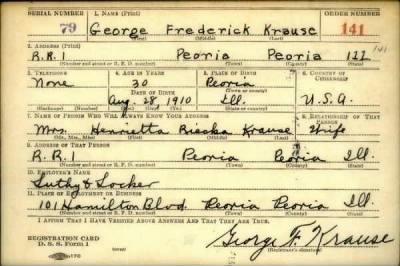 SERIAL NUMBER 1. NAME (Print) ORDER NUMBER
79 George Frederick Krause 141
(First) (Middle) (Last)
2. ADDRESS (Print) 141
R.R.1 Peoria Peoria Ill
(Number and street or R. F. D. number) (Town) (County) (State)
3. TELEPHONE 4. AGE IN YEARS 5. PLACE OF BIRTH 6. COUNTRY OF CITIZENSHIP
None 30 Peoria
DATE OF BIRTH (Town or county)
Aug. 28, 1910 Ill. U.S.A.
(Exchange) (Number) (Mo.) (Day) (Yr.) (State or country)
7. NAME OF PERSON WHO WILL ALWAYS KNOW YOUR ADDRESS 8. RELATIONSHIP OF THAT PERSON
Mrs. Henrietta Krause Wife
(Mr., Mrs., Miss) (First) (Middle) (Last)
9. ADDRESS OF THAT PERSON
R.R.1 Peoria Peoria Ill.
(Number and street or R. F. D. number) (Town) (County) (State)
10. EMPLOYER'S NAME
Locker
11. PLACE OF EMPLOYMENT OR BUSINESS
101 Hamilton Blvd. Peoria Peoria Ill.
(Number and street or R. F. D. number) (Town) (County) (State)
I AFFIRM THAT I HAVE VERIFIED ABOVE ANSWERS AND THAT THEY ARE TRUE.
REGISTRATION CARD
D. S. S. Form 1 George F. Krause
(Registrant's signature)